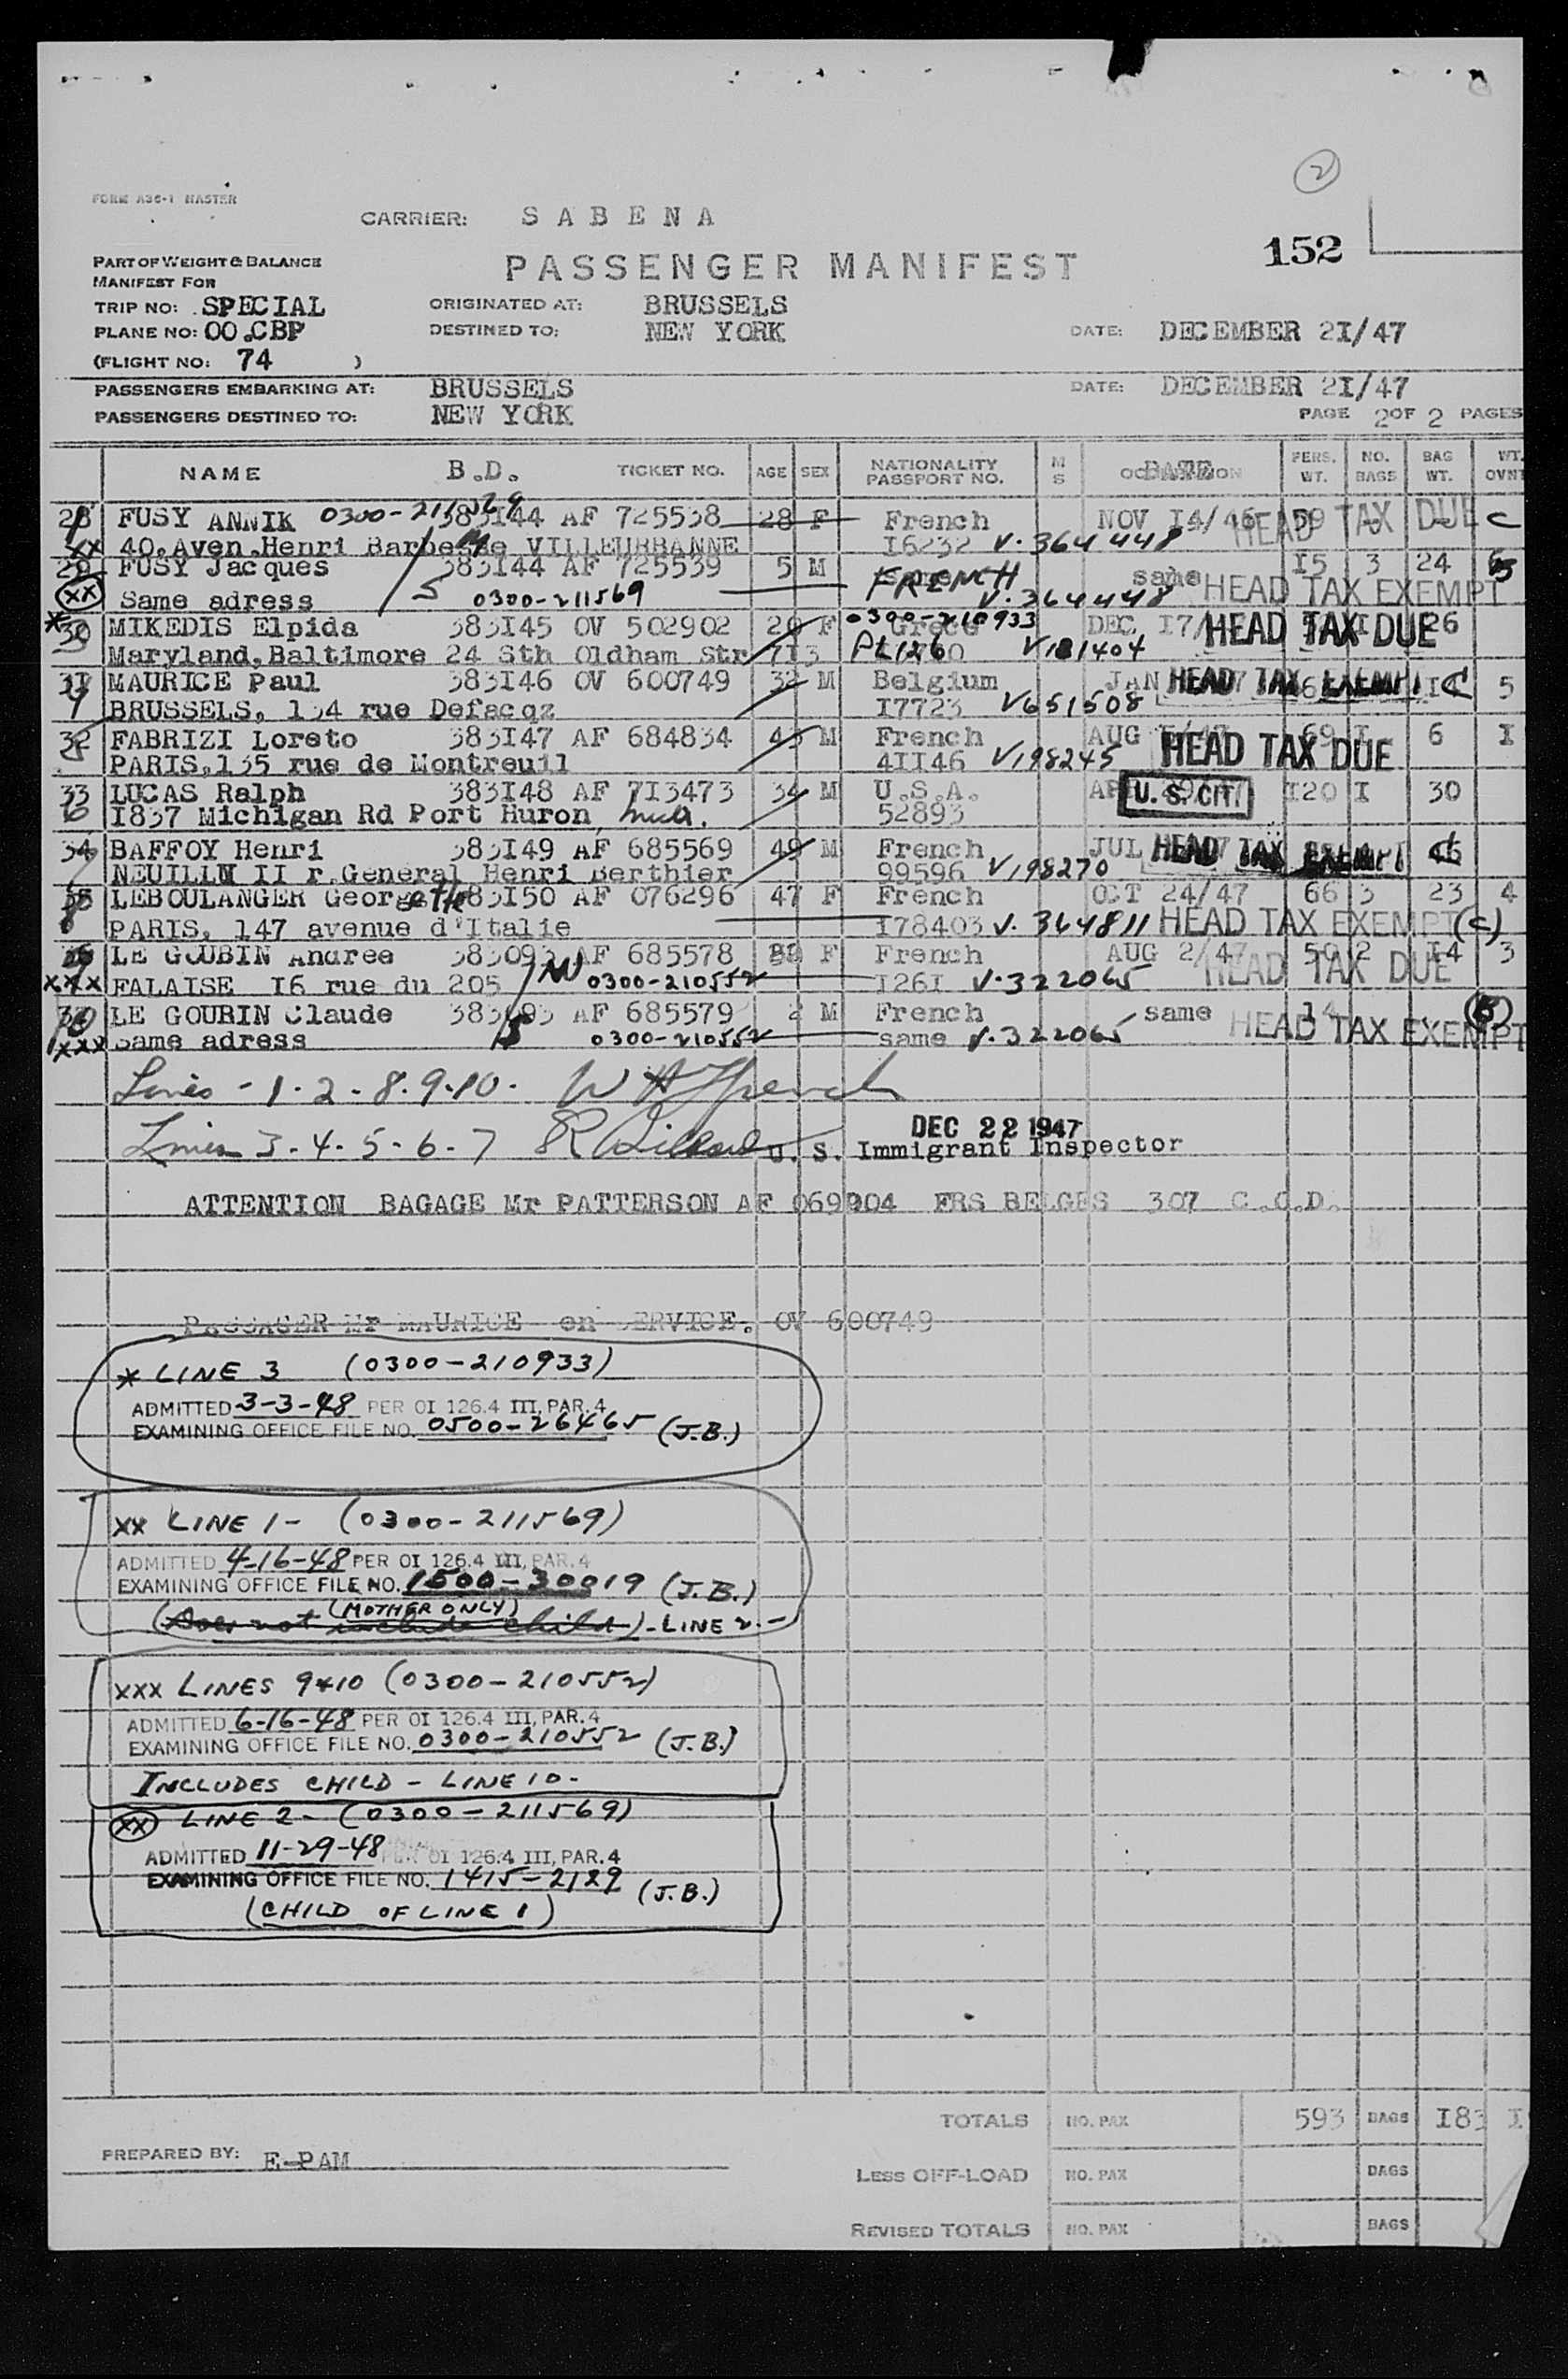 2
FORM A36-1 MASTER
CARRIER: SABENA
152
PART OF WEIGHT & BALANCE
PASSENGER MANIFEST
MANIFEST FOR
TRIP NO: SPECIAL ORIGINATED AT: BRUSSELS
PLANE NO: OO.CBP DESTINED TO: NEW YORK DATE: DECEMBER 2I/47
(FLIGHT NO: 74 )
PASSENGERS EMBARKING AT: BRUSSELS DATE: DECEMBER 2I/47
PASSENGERS DESTINED TO: NEW YORK PAGE 2 OF 2 PAGES
NAME B.D. TICKET NO. AGE SEX NATIONALITY PASSPORT NO. M S DATE PERS. WT. NO. BAGS BAG WT. WT. OVNT
28 FUSY ANNIK 0300-211569 383I44 AF 725538 28 F French NOV I4/46 59 HEAD TAX DUE C
1 xx 40.Aven.Henri Barbesse VILLEURBANNE I6232 V.364448
29 FUSY Jacques 383I44 AF 725539 5 M FRENCH same I5 3 24
(XX) Same adress S 0300-211569 V.364448 HEAD TAX EXEMPT
* 30 MIKEDIS Elpida 383I45 OV 502902 20 F 0300-210933 Grece DEC I7/ HEAD TAX DUE 26
Maryland,Baltimore 24 Sth Oldham Str 713 V181404
31 MAURICE Paul 383I46 OV 600749 32 M Belgium JAN HEAD TAX EXEMPT C 5
BRUSSELS, 134 rue Defacqz I7723 V651508
32 FABRIZI Loreto 383I47 AF 684834 43 M French AUG 69 I 6 I
PARIS,135 rue de Montreuil 4II46 V198245 HEAD TAX DUE
33 LUCAS Ralph 383I48 AF 7I3473 34 M U.S.A. U.S. CIT. I20 I 30
6 I837 Michigan Rd Port Huron, Mich. 52893
34 BAFFOY Henri 383I49 AF 685569 49 M French JUL HEAD TAX EXEMPT
7 NEUILLN II r.General Henri Berthier 99596 V198270
35 LEBOULANGER Georgette 383I50 AF 076296 47 F French OCT 24/47 66 3 23 4
8 PARIS, 147 avenue d'Italie I78403 V.364811 HEAD TAX EXEMPT (C)
36 LE GOUBIN Andree 383093 AF 685578 F French AUG 2/47 50 2 I4 3
xxx FALAISE I6 rue du 205 0300-210552 I26I V.322065 HEAD TAX DUE
37 LE GOURIN Claude 383093 AF 685579 2 M French same 14
10 xxx Same adress S 0300-210552 same V.322065 HEAD TAX EXEMPT
Lines - 1.2-8.9.10.
DEC 22 1947
Lines 3-4-5-6-7 U. S. Immigrant Inspector
ATTENTION BAGAGE Mr PATTERSON AF 069904 FRS BELGES 307 C.O.D.
PASSAGER Mr MAURICE en SERVICE. OV 600749
* LINE 3 (0300-210933)
ADMITTED 3-3-48 PER OI 126.4 III, PAR. 4
EXAMINING OFFICE FILE NO. 0500-26465 (J.B.)
XX LINE 1- (0300-211569)
ADMITTED 4-16-48 PER OI 126.4 III, PAR. 4
EXAMINING OFFICE FILE NO. 1500-30019 (J.B.)
(MOTHER ONLY)
(Does not include child)-LINE 2.-
XXX LINES 9+10 (0300-210552)
ADMITTED 6-16-48 PER OI 126.4 III, PAR. 4
EXAMINING OFFICE FILE NO. 0300-210552 (J.B.)
INCLUDES CHILD - LINE 10-
(XX) LINE 2- (0300-211569)
ADMITTED 11-29-48 PER OI 126.4 III, PAR. 4
EXAMINING OFFICE FILE NO. 1415-2129 (J.B.)
(CHILD OF LINE 1)
TOTALS NO. PAX 593 BAGS I83
PREPARED BY: E-PAM
LESS OFF-LOAD NO. PAX BAGS
REVISED TOTALS NO. PAX BAGS